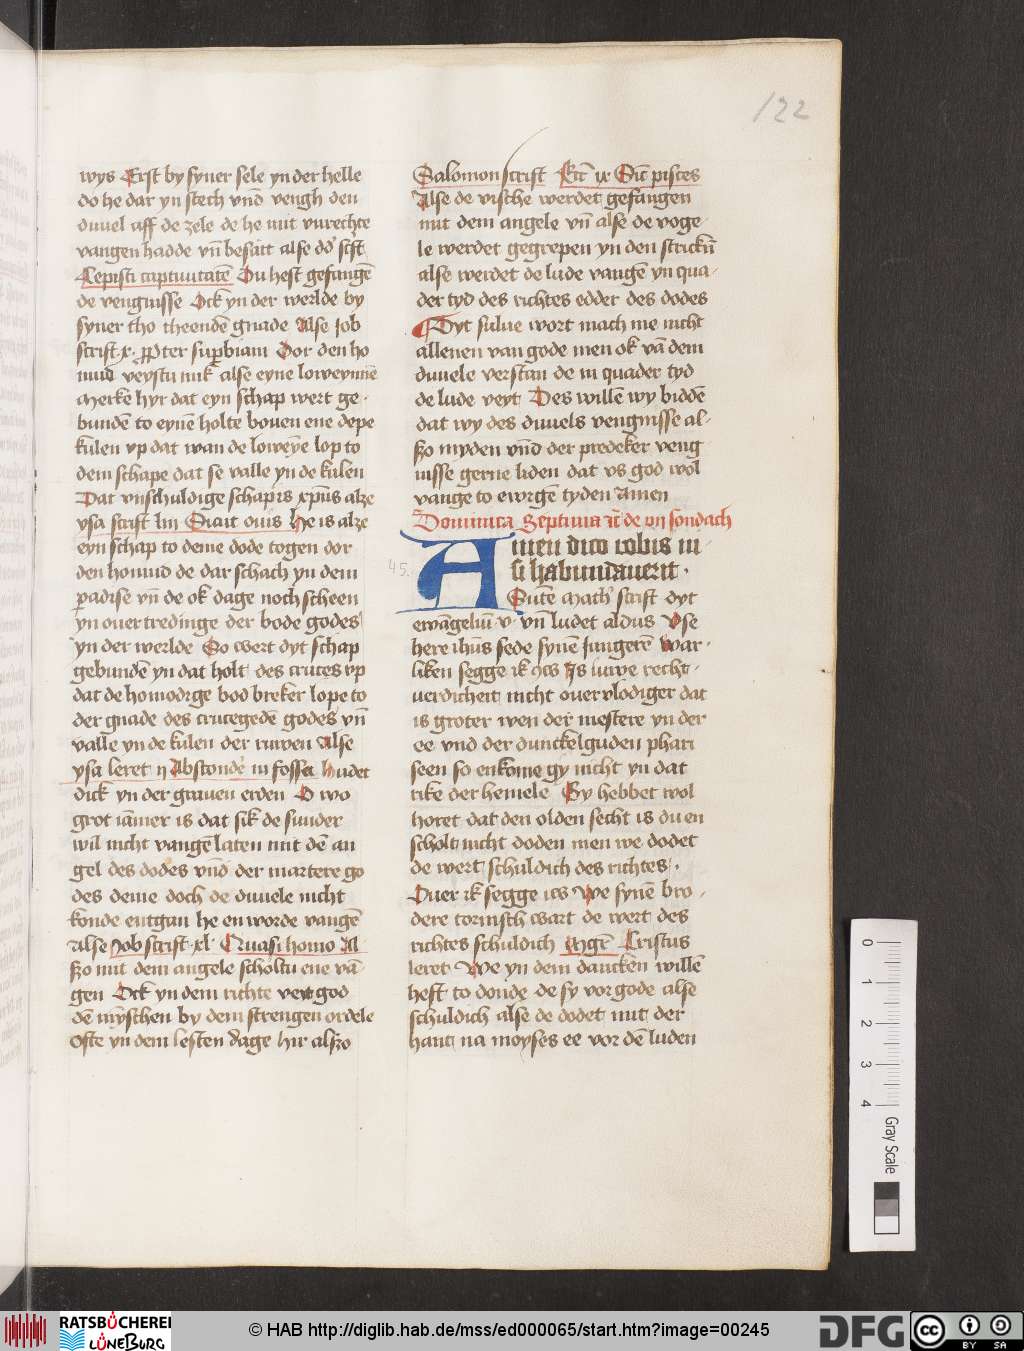 122
wys Erst by syner sele yn der helle
do he dar yn stech vnd vengh den
duuel aff de zele de he mit vnrechte
vangen hadde vn̄ besatt alse dd' scst
Cepisti captiuitatē Du hest gefangē
de vengnisse Ock yn der werlde by
syner tho theendē gnade Alse Job
scrift x. ꝓpter supbiam Dor den ho
mud veystu mik alse eyne loweynnē
Merkē hyr dat eyn schap wert ge-
bundē to eynē holte bouen ene depe
kulen vp dat wan de lowēye lop to
dem schape dat se valle yn de kulen
Dat vnschuldige schap is xp̄us alze
ysa scrift liii Sicut ouis He is alze
eyn schap to deme dode togen dor
den homud de dar schach yn dem
paradise vn̄ de ok dage noch scheen
yn ouertredinge der bode godes
yn der werlde So wert dyt schap
gebundē yn dat holt des cruces vp
dat de homodige bod breker lope to
der gnade des crucegedē godes vn̄
valle yn de kulen der ruwen Alse
ysa leret ii Abscondē in fossa hudet
dick yn der grauen erden O wo
grot iāmer is dat sik de sunder
wil nicht vangē laten mit dē an
gel des dodes vnd der martere go
des deme doch de duuele nicht
konde entgan he en worde vangē
alse Job scrift xl Quasi homo Al
szo mit dem angele scholtu ene vā-
gen Ock yn dem richte veyt god
dē mynschen by dem strengen ordele
Ofte yn dem lesten dage hir alszo
Salomon scrift Ecc̄ ix Sic̄ pisces
Alse de vische werdet gefangen
mit dem angele vn̄ alse de voge-
le werdet gegrepen yn den strickē
alse werdet de lude vangē yn qua-
der tyd des richtes edder des dodes
Dyt sulue wort mach me nicht
allenen van gode men ok vā dem
duuele verstan de in quader tyd
de lude veyt Des willē wy biddē
dat wy des duuels vengnisse al-
szo myden vnd der predeker veng
nisse gerne liden dat vs god wol
vange to ewigē tyden Amen
Dominica Septima de vij sondach
45.
Amen dico vobis ni-
si habundauerit.
Sute Math' scrift dyt
ewāgeliū v. vn̄ ludet aldus Vse
here ihūs sede synē Jungerē War-
liken segge ik yw Is iuwe recht-
uerdicheit nicht ouervlodiger dat
is groter wen der mestere yn der
ee vnd der dunckelguden phari
seen so enkome gy nicht yn dat
rike der hemele Gy hebbet wol
horet dat den olden secht is du en
scholt nicht doden men we dodet
de wert schuldich des richtes.
Ouer ik segge iw We synē bro-
dere tornisch wart de wert des
richtes schuldich Mgr̄ Cristus
leret We yn dem dancken willē
heft to donde de sy vor gode alse
schuldich alse de dodet mit der
hant na moyses ee vor dē luden
0
1
2
3
4
Gray Scale
RATSBÜCHEREI
LÜNEBURG
© HAB http://diglib.hab.de/mss/ed000065/start.htm?image=00245
DFG
cc
BY
SA